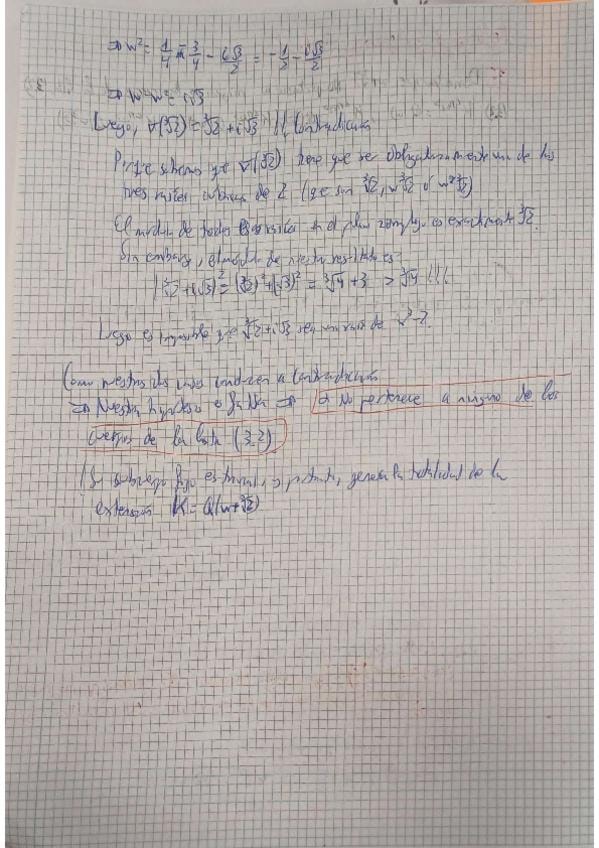 ⇒ w² = 1/4 - 3/4 - i√3/2 = -1/2 - i√3/2
⇒ i√3
Luego, σ(∛2) = ∛2 + i√3 !! Contradicción
Porque sabemos que σ(∛2) tiene que ser obligatoriamente una de las
tres raíces cúbicas de 2 (que son ∛2, w∛2 ó w²∛2)
El módulo de todas las raíces en el plano complejo es exactamente ∛2.
Sin embargo, el módulo de nuestro resultado es:
|∛2 + i√3|² = (∛2)² + (√3)² = ∛4 + 3 > ∛4 !!!
Luego es imposible que ∛2 + i√3 sea una raíz de x³-2.
Como nuestros dos casos conducen a contradicción
⇒ Nuestra hipótesis es falsa ⇒ α No pertenece a ninguno de los
cuerpos de la lista (3.2)
Su subgrupo fijo es trivial, y, por tanto, genera la totalidad de la
extensión K = Q(w+∛2)